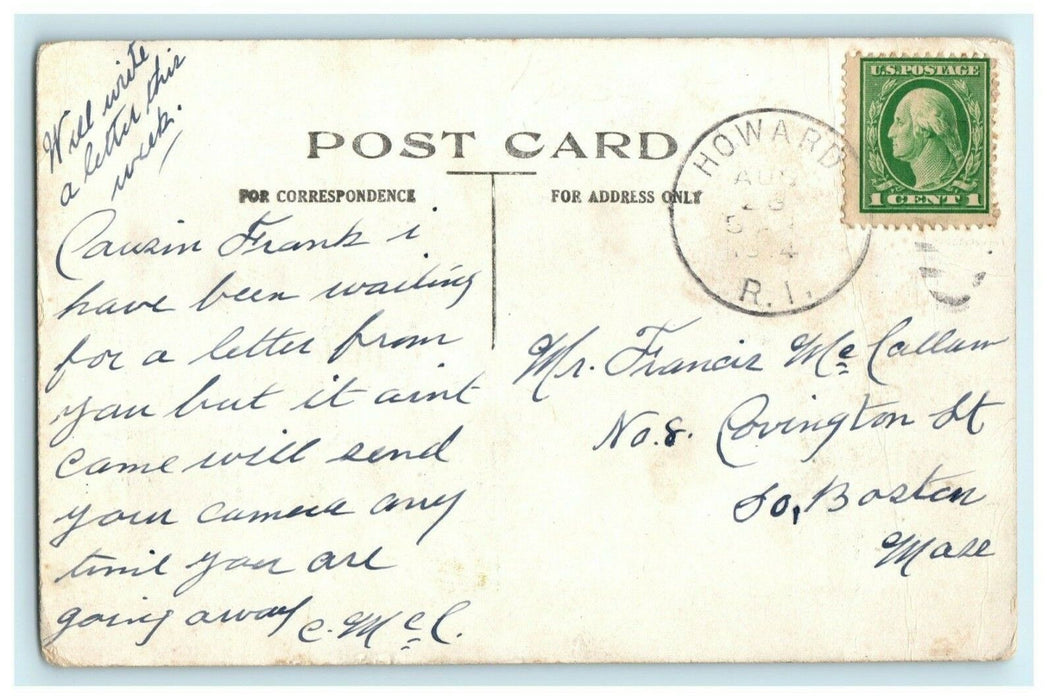 Will write
a letter this
week.
POST CARD
FOR CORRESPONDENCE
FOR ADDRESS ONLY
HOWARD
AUG
R. I.
U.S. POSTAGE
1 CENT 1
Cousin Frank i
have been waiting
for a letter from
you but it aint
came will send
your camera any
time you are
going away
C. McC.
Mr. Francis McCallum
No. 8. Covington St
So, Boston
Mass